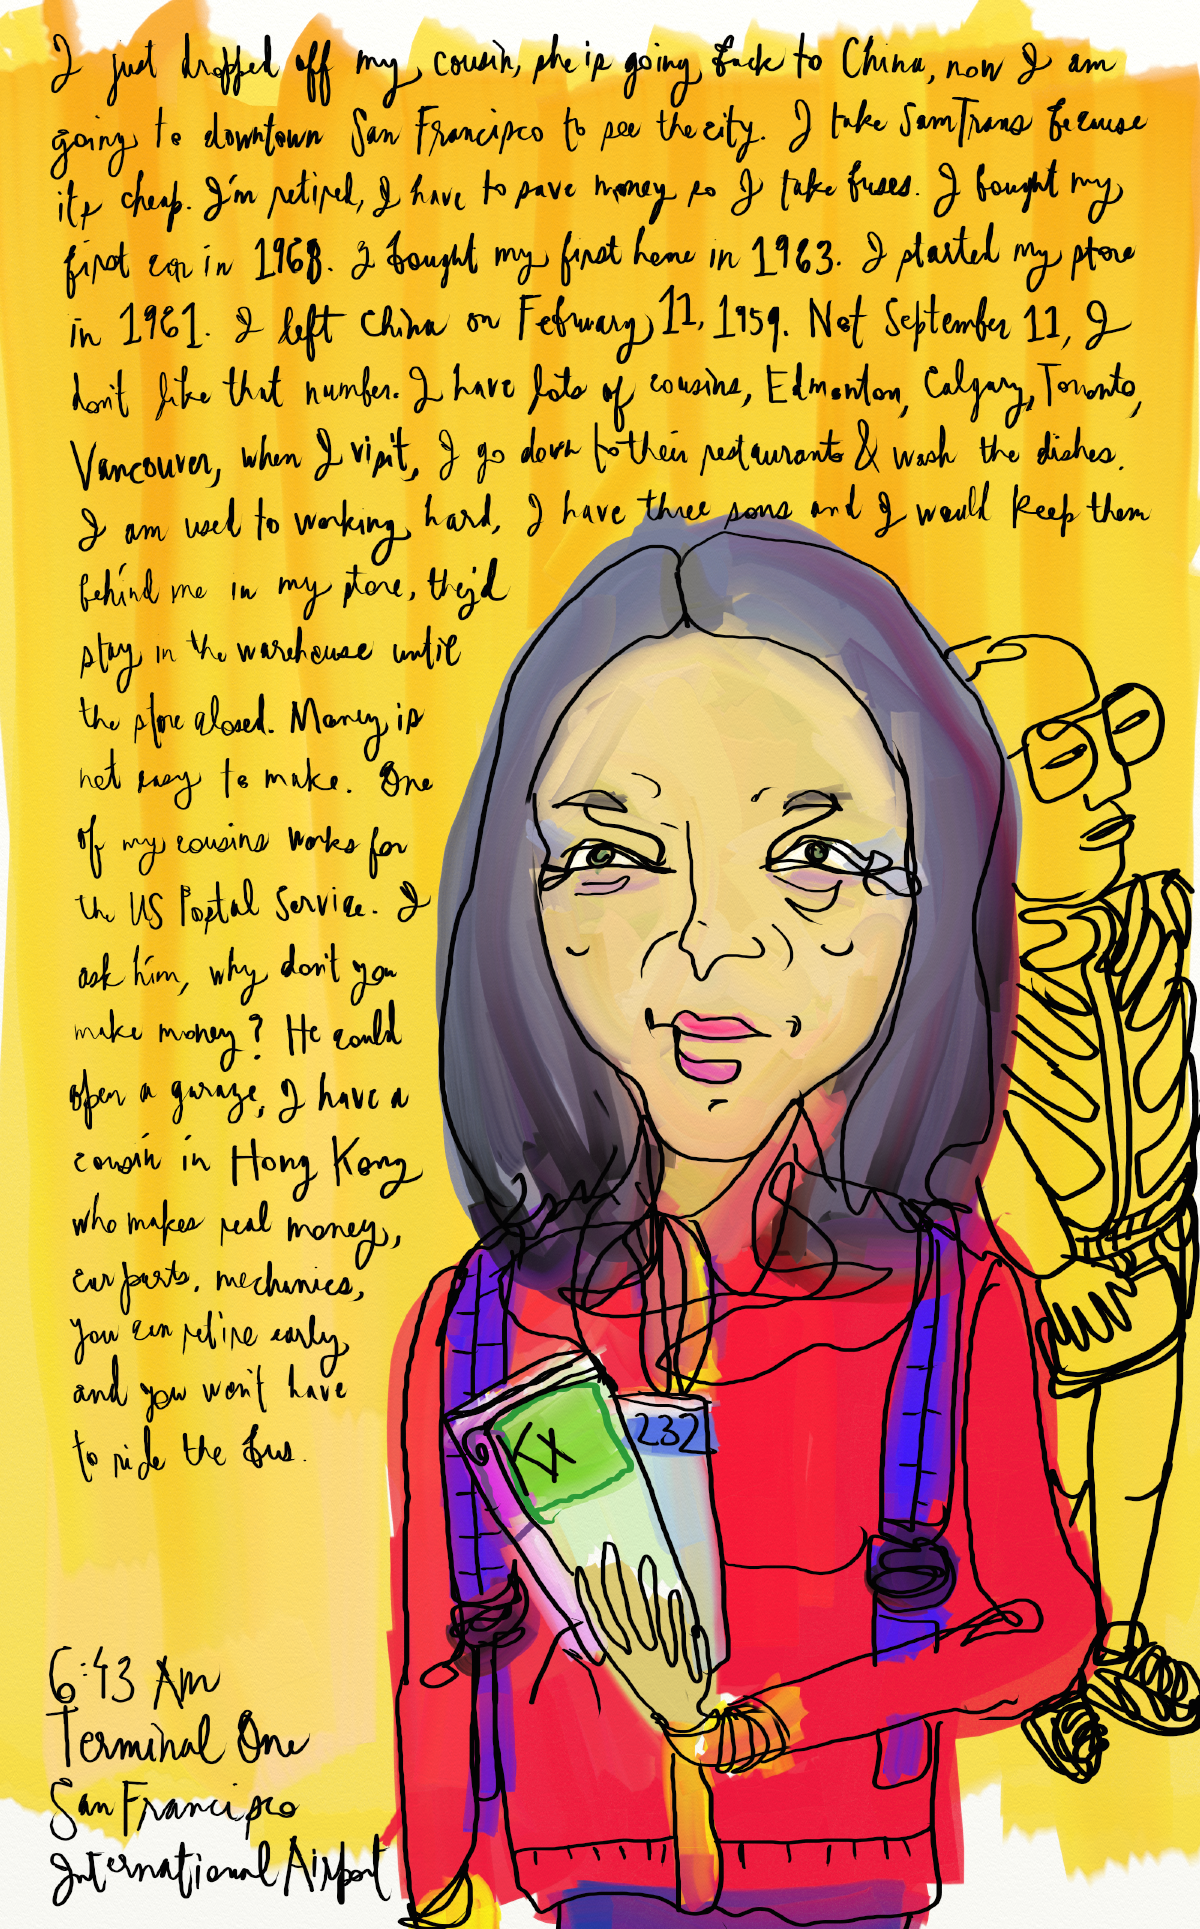 I just dropped off my cousin, she is going back to China, now I am
going to downtown San Francisco to see the city. I take SamTrans because
its cheap. I'm retired, I have to save money so I take buses. I bought my
first car in 1968. I bought my first home in 1963. I started my store
in 1961. I left China on February 11, 1959. Not September 11, I
don't like that number. I have lots of cousins, Edmonton, Calgary, Toronto,
Vancouver, when I visit, I go down to their restaurants & wash the dishes.
I am used to working hard, I have three sons and I would keep them
behind me in my store, they'd
stay in the warehouse until
the store closed. Money is
not easy to make. One
of my cousins works for
the US Postal Service. I
ask him, why don't you
make money? He could
open a garage, I have a
cousin in Hong Kong
who makes real money,
car parts, mechanics,
you can retire early
and you won't have
to ride the bus.
KX
232
6:43 AM
Terminal One
San Francisco
International Airport